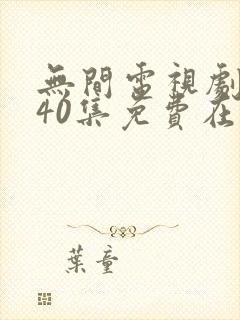 無間電視劇
40集免費在
葉童